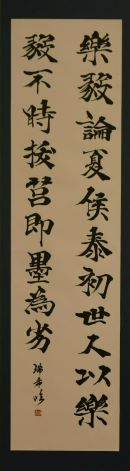 樂毅論夏侯泰初世人以樂
毅不時拔莒即墨為劣